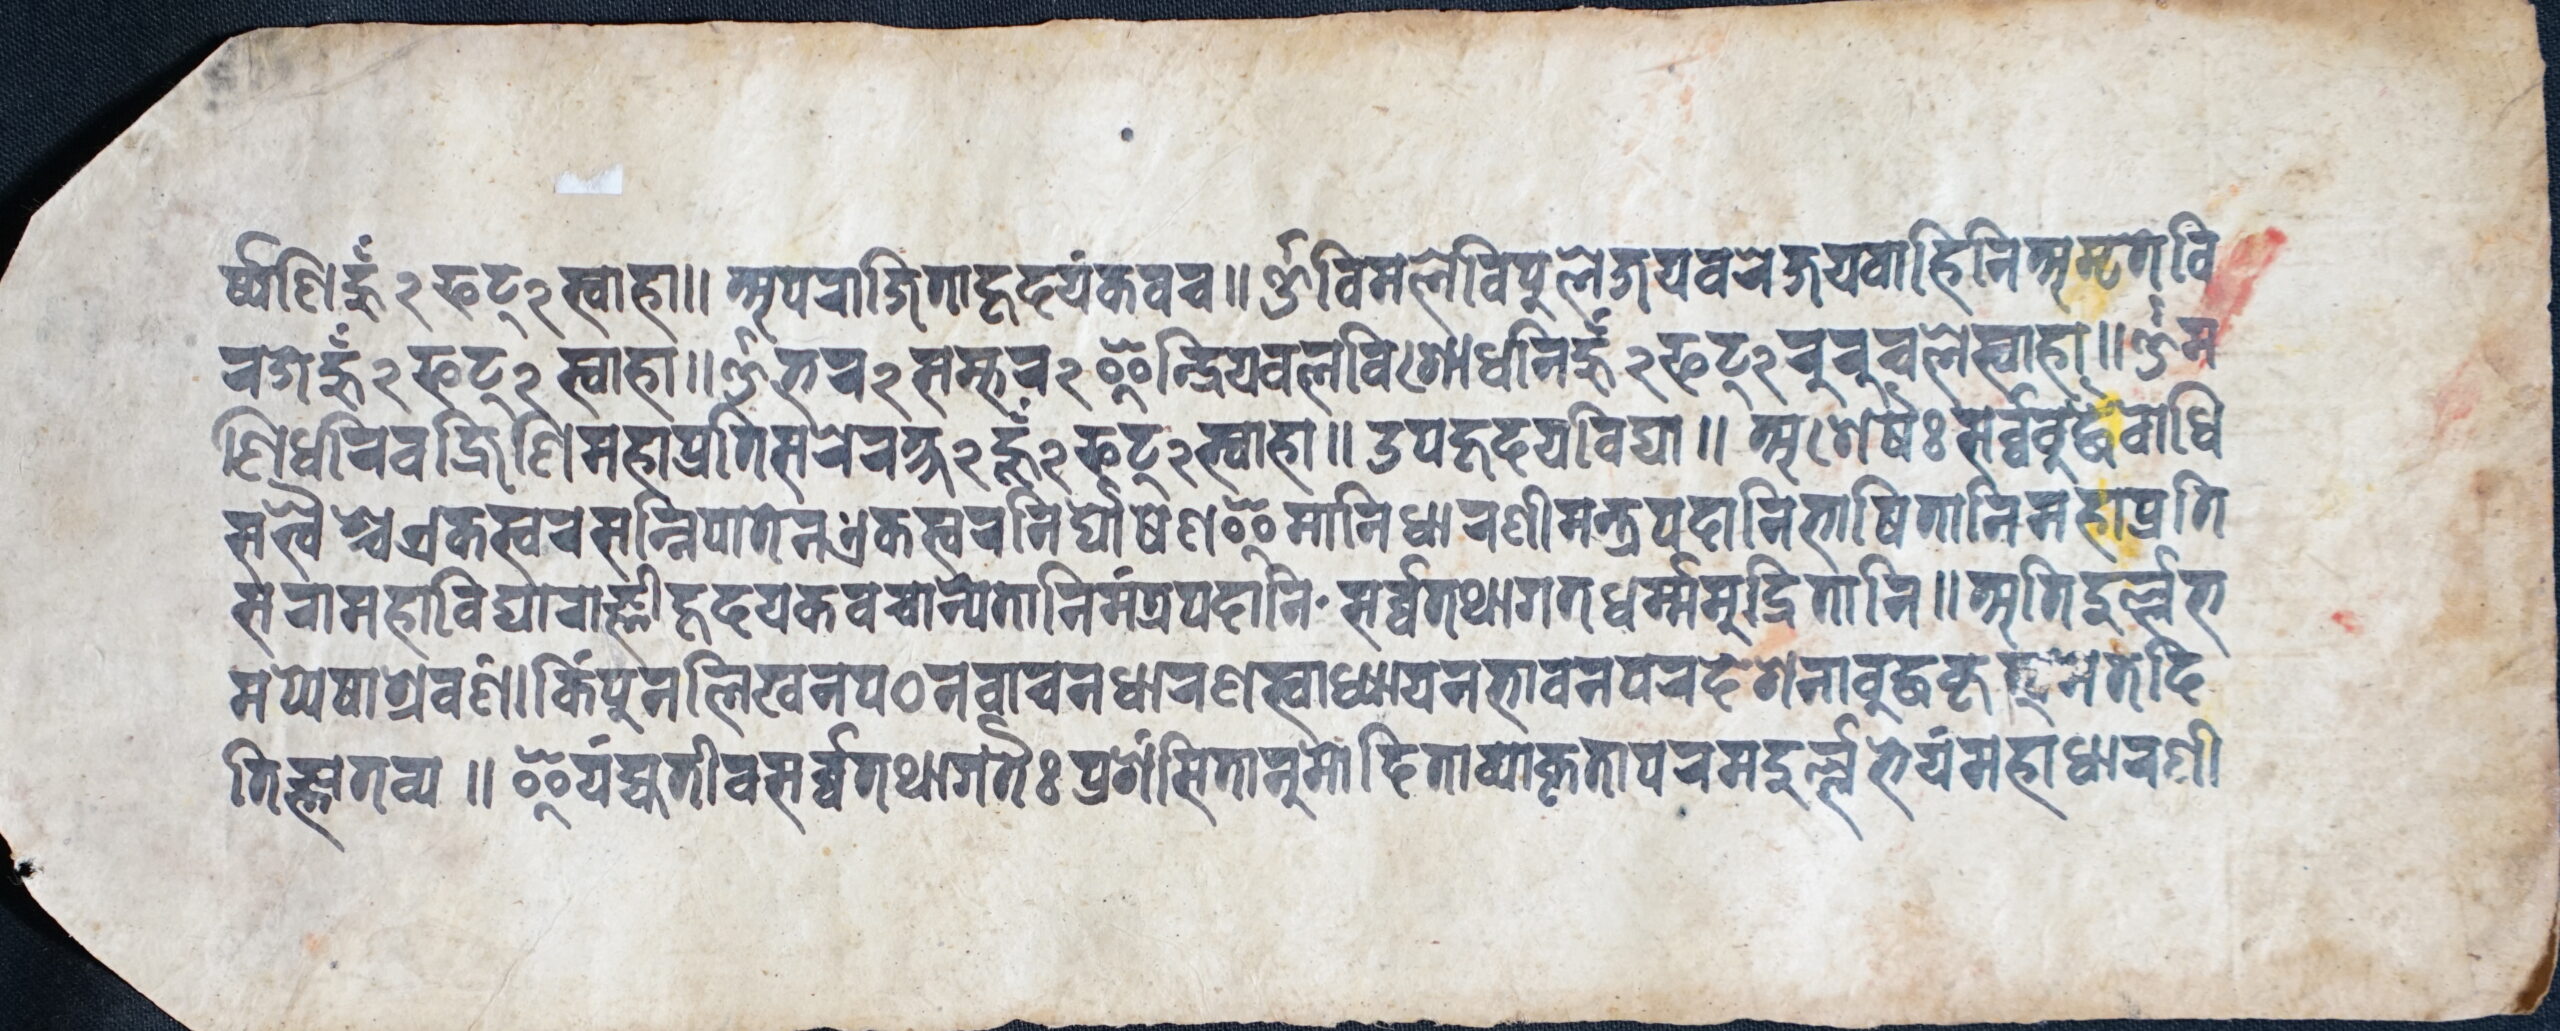 र्ष्षणिहूँ२फट्२स्वाहा॥ अपराजिताहृदयंकवच॥ॐविमलेविपुलेजयवरेजयवाहिनिअमृतवि
रजेहूँ२फट्२स्वाहा॥ॐभर२सम्भर२इन्द्रियवलविशोधनिहूँ२फट्२रुरुचलेस्वाहा॥ॐम
णिधरिवज्रिणिमहाप्रतिसरेरक्ष२हूँ२फट्२स्वाहा॥ उपहृदयविद्या॥ अशेषैः सर्व्वबुद्धबोधि
सत्वैश्चएकस्वरसन्निपातेनएकस्वरनिर्घोषेणइमानिधारणीमन्त्रपदानिभाषितानिमहाप्रति
सरामहाविद्याराज्ञीहृदयकवचान्येतानिमंत्रपदानि·सर्व्वतथागतधर्म्ममुद्रितानि॥अतिदुर्ल्लभ
मप्येषाश्रवणं।किंपुनलिखनपठनवाचनधारणस्वाध्यायनभावनपरदेशनाबुद्धकृत्यमेतदि
तिज्ञातव्य॥ इयंह्यतीवसर्व्वतथागतैः प्रशंसितानुमोदिताव्याकृतापरमदुर्ल्लभेयंमहाधारणी